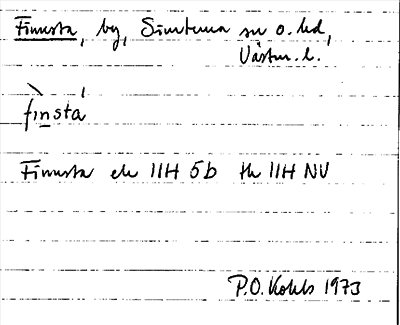 Finnsta, by, Simtuna sn o. hd,
Västm. l.
fìnstá
Finnsta ek 11H 5b tk 11H NV
P.O. Kohls 1973